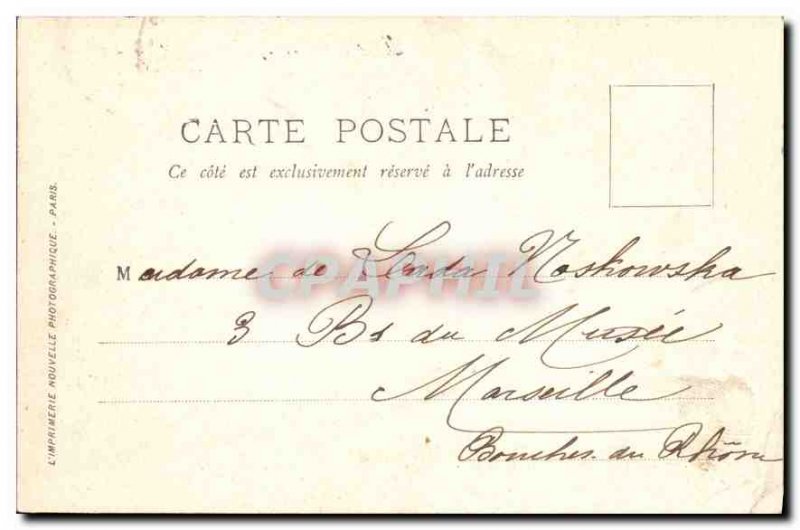 CARTE POSTALE
Ce côté est exclusivement réservé à l'adresse
Madame de Noskowska
3 Bd du Musée
Marseille
Bouches du Rhône
L'IMPRIMERIE NOUVELLE PHOTOGRAPHIQUE. - PARIS.
CPAPHIL